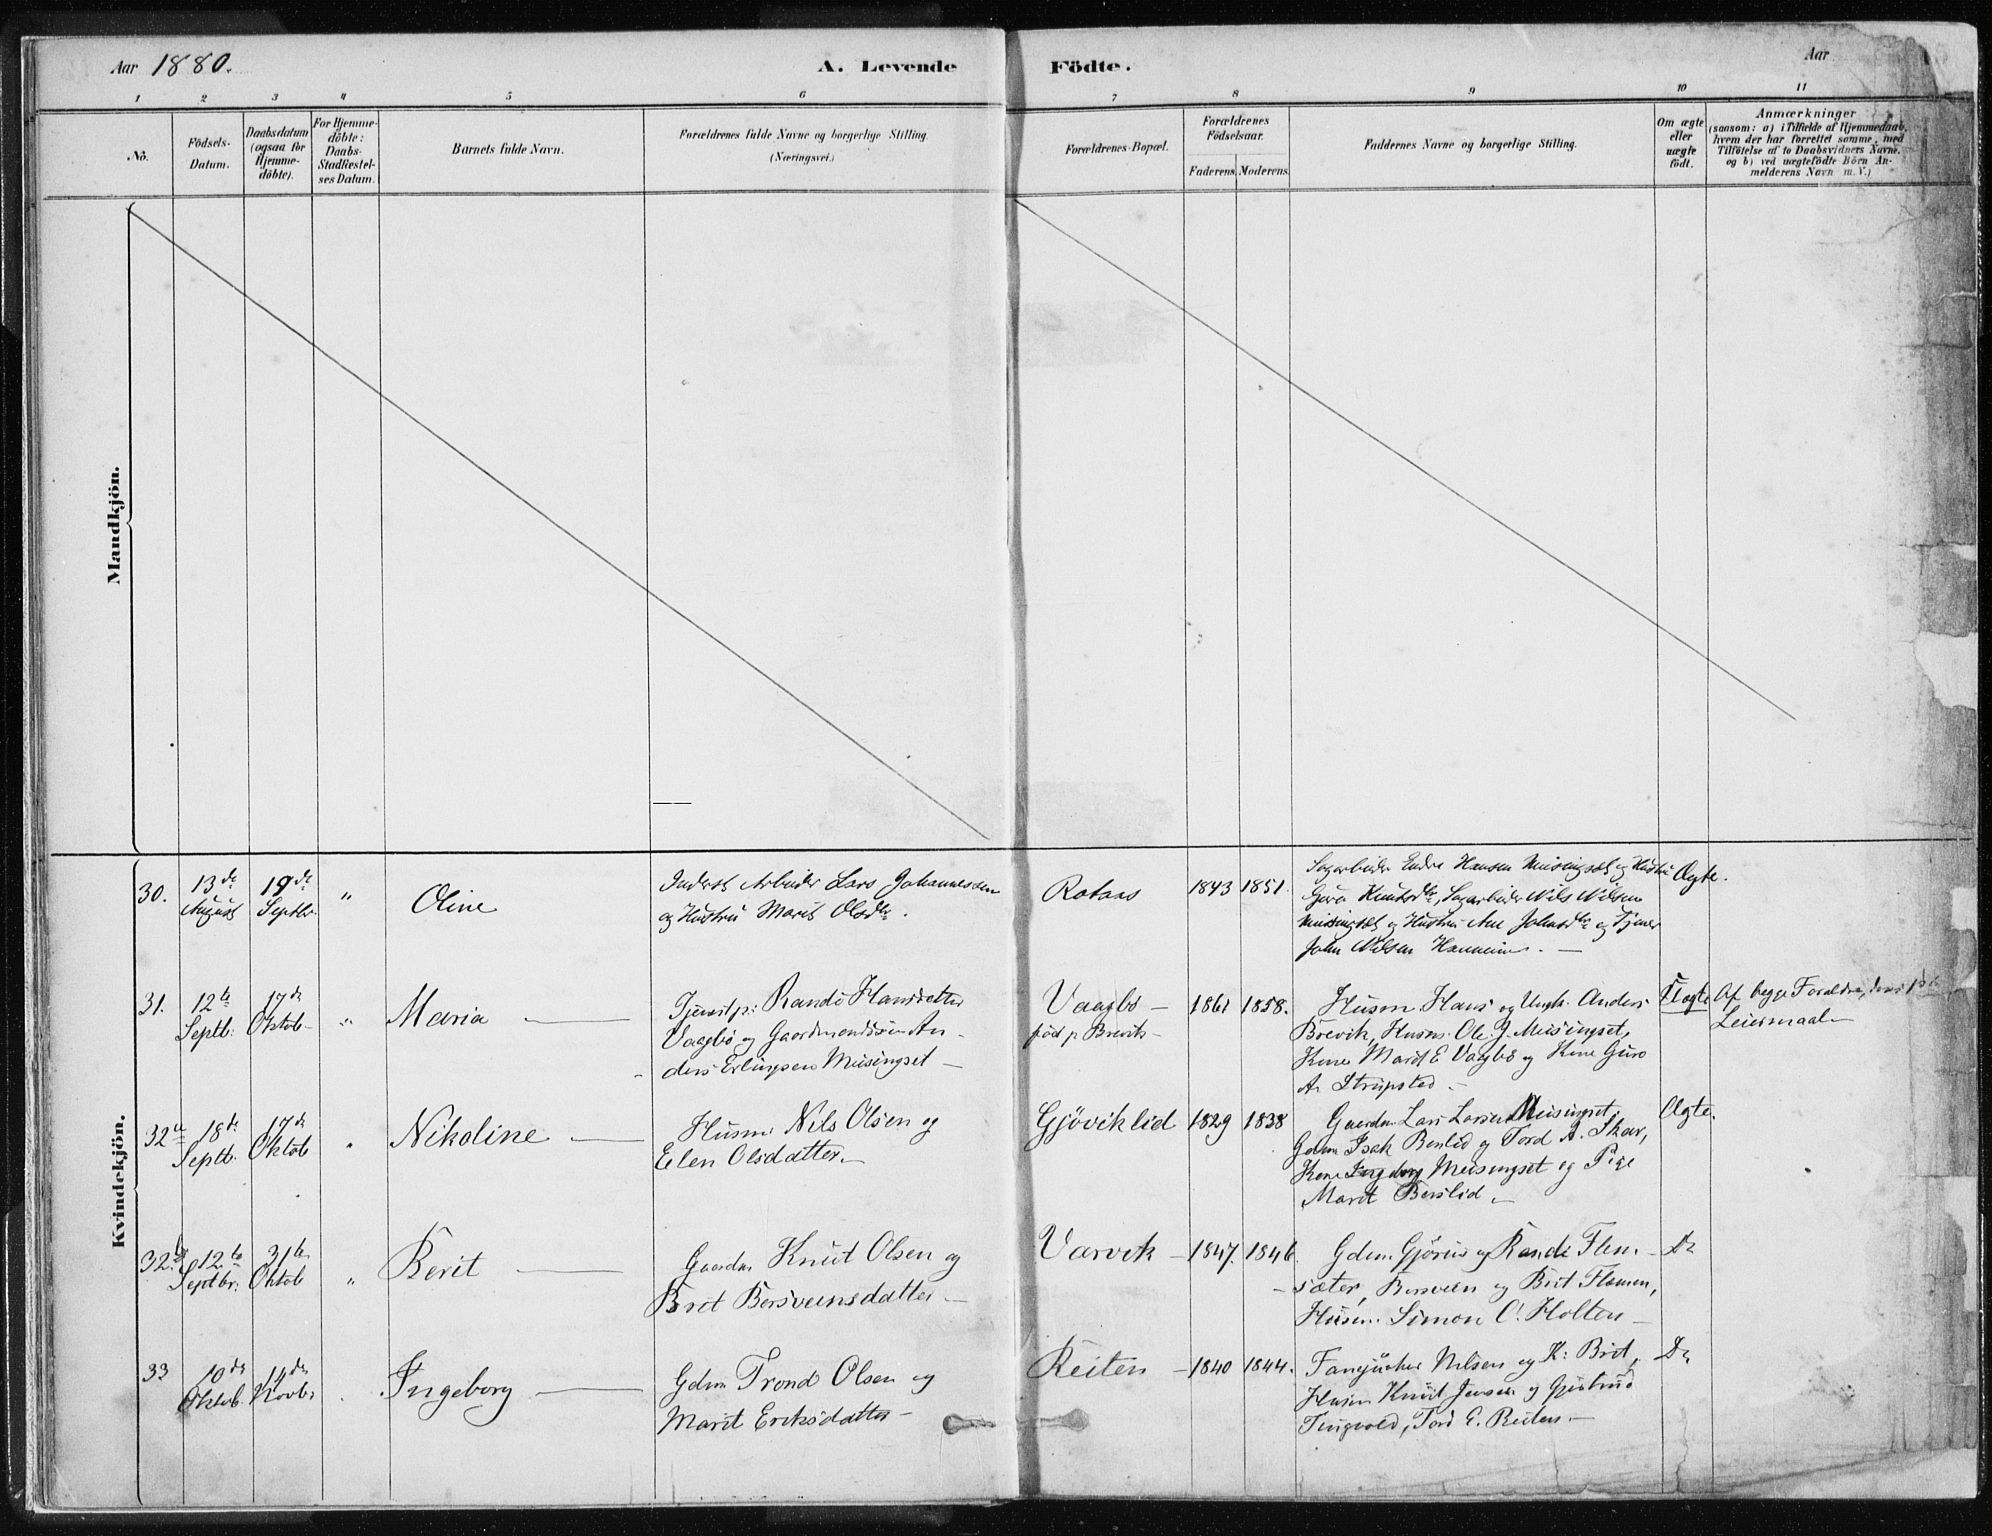 Aar 1880.
A. Levende Födte.
Aar
1 2 3 4 5 6 7 8 9 10 11
No.
Födsels-
Datum.
Daabsdatum
(ogsaa for
Hjemme-
döbte).
For Hjemme-
döbte:
Daabs-
Stadfæstel-
ses Datum.
Barnets fulde Navn.
Forældrenes fulde Navne og borgerlige Stilling.
(Næringsvei.)
Forældrenes Bopæl.
Forældrenes
Födselsaar.
Faderens. Moderens.
Faddernes Navne og borgerlige Stilling.
Om ægte
eller
uægte
födt.
Anmærkninger
(saasom: a) i Tilfælde af Hjemmedaab,
hvem der har forrettet samme, med
Tilföielse af to Daabsvidners Navne,
og b) ved uægtefödte Börn An-
melderens Navn m. V.)
Mandkjön.
Kvindekjön.
30.
13de
August
19de
Septbr.
"
Oline
Inderst Arbeider Lars Johannessen
og Hustru Marit Olsdtr.
Rotaas
1843 1851.
Sagarbeider Endre Hansen Meisingset og Hustru
Guro Knutsdtr, Sagarbeider Nils Nilsen
Meisingset og Hustru Ane Johnsdtr og Tjener
John Nilsen
Ægte.
31.
12te
Septb:
17de
Oktob-
"
Maria
Tjenstp: Randi Hansdatter
Vaagbö og Gaardmandssön An-
ders Erlingsen Meisingset -
Vaagbö -
föd p Brevik-
1861 1858.
Husm Hans og Ungk. Anders
Brevik, Husm. Ole J. Meisingset,
Kone Marit E Vaagbö og Kone Guro
A. Strupstad -
Uægte
Af begge Forældre, deres 1ste
Leiermaal-
32a
18de
Septb.
17de
Oktob
"
Nikoline
Husm. Nils Olsen og
Elen Olsdatter.
Gjöviklid
1829 1838
Gaardm. Lars Larsen Meisingset,
Gdm Isak Berslid og Tord A. Skar,
Kone Ingeborg Meisingset og Pige
Marit Berslid -
Ægte.
32b
12te
Septbr:
31te
Oktob
"
Berit
Gaardm Knut Olsen og
Brit Bersveinsdatter -
Varvik
1847. 1846
Gdm. Gjörus og Randi Flem-
-sæter, Bersvein og Brit Flemmen,
Husm. Simon O. Holten -
Do
33
10de
Oktob.
14de
Novb:
"
Ingeborg
Gdm Trond Olsen og
Marit Eriksdatter -
Reiten
1840 1844.
Nilsen og K: Brit,
Husm Knut Jensen og Gjertrud
Tingvold, Tord E. Reiten -
Do